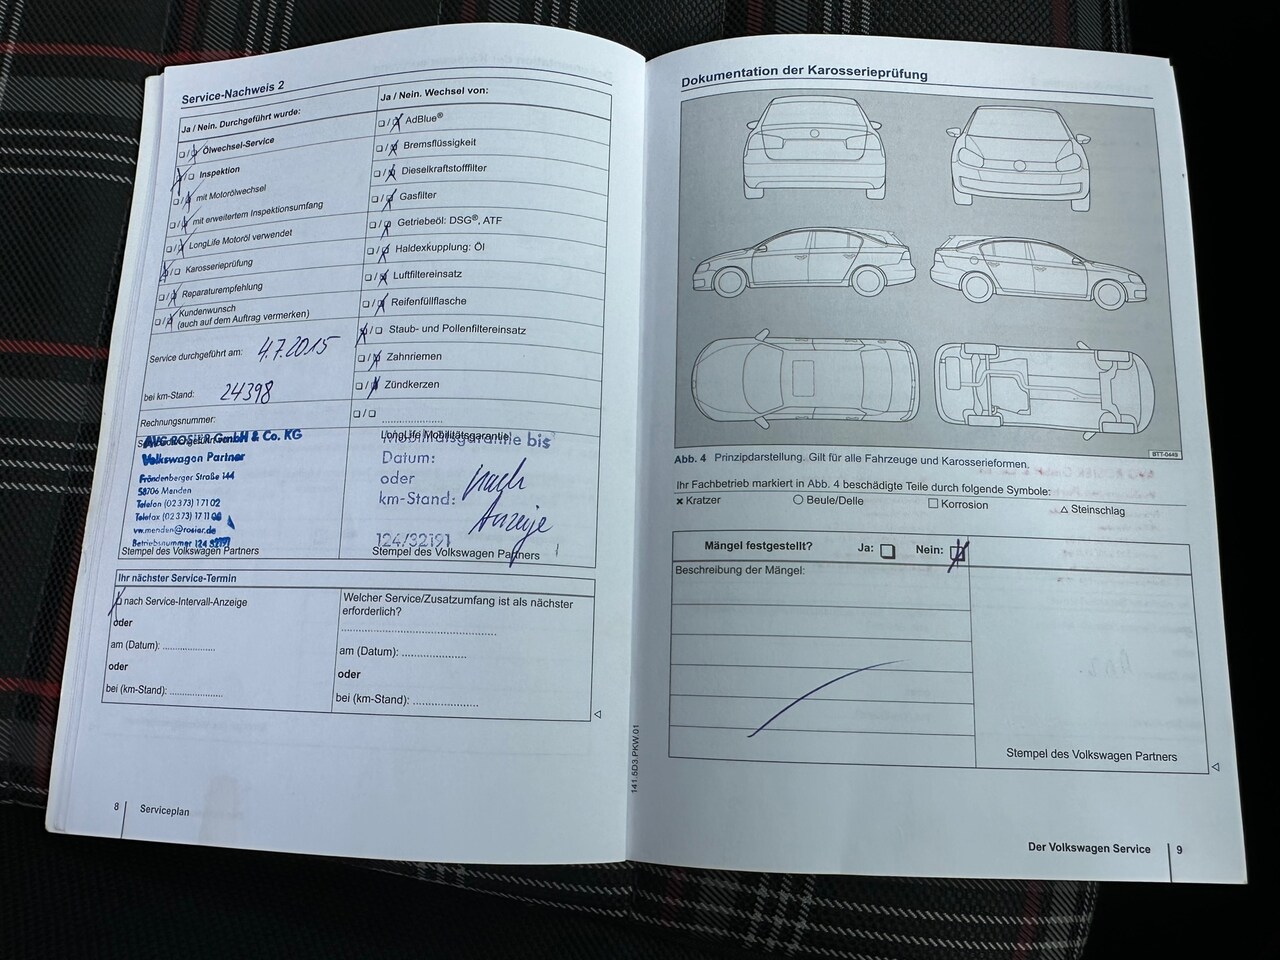 Service-Nachweis 2
Ja / Nein. Durchgeführt wurde:
☐/☒ Ölwechsel-Service
☒/☐ Inspektion
☐/☒ mit Motorölwechsel
☐/☒ mit erweitertem Inspektionsumfang
☐/☒ LongLife Motoröl verwendet
☒/☐ Karosserieprüfung
☐/☒ Reparaturempfehlung
☐/☒ Kundenwunsch
(auch auf dem Auftrag vermerken)
Service durchgeführt am: 4.7.2015
bei km-Stand: 24398
Rechnungsnummer:
AVG ROSIER GmbH & Co. KG
Volkswagen Partner
Fröndenberger Straße 144
58706 Menden
Telefon (02373) 17102
Telefax (02373) 171108
vw.menden@rosier.de
Betriebsnummer 124 32191
Stempel des Volkswagen Partners
Ja / Nein. Wechsel von:
☐/☒ AdBlue®
☐/☒ Bremsflüssigkeit
☐/☒ Dieselkraftstofffilter
☐/☒ Gasfilter
☐/☒ Getriebeöl: DSG®, ATF
☐/☒ Haldexkupplung: Öl
☐/☒ Luftfiltereinsatz
☐/☒ Reifenfüllflasche
☒/☐ Staub- und Pollenfiltereinsatz
☐/☒ Zahnriemen
☐/☒ Zündkerzen
☐/☐ ....................
LongLife Mobilitätsgarantie
Mobilitätsgarantie bis
Datum:
oder nach
km-Stand: Anzeige
124/32191
Stempel des Volkswagen Partners
Ihr nächster Service-Termin
☒ nach Service-Intervall-Anzeige
oder
am (Datum): ................
oder
bei (km-Stand): ................
Welcher Service/Zusatzumfang ist als nächster
erforderlich?
................................................
am (Datum): ....................
oder
bei (km-Stand): ....................
8 Serviceplan
141.5D3.PKW.01
Dokumentation der Karosserieprüfung
BTT-0449
Abb. 4 Prinzipdarstellung. Gilt für alle Fahrzeuge und Karosserieformen.
Ihr Fachbetrieb markiert in Abb. 4 beschädigte Teile durch folgende Symbole:
× Kratzer ○ Beule/Delle □ Korrosion △ Steinschlag
Mängel festgestellt? Ja: ☐ Nein: ☒
Beschreibung der Mängel:
Stempel des Volkswagen Partners
Der Volkswagen Service 9